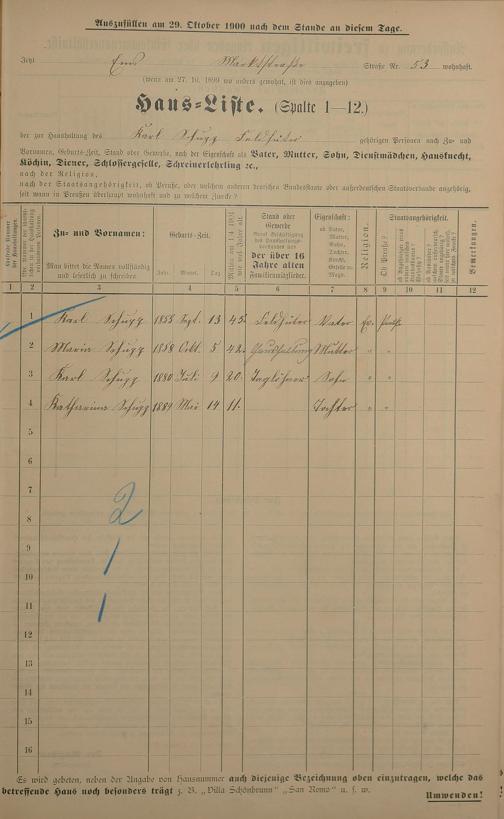 Auszufüllen am 29. Oktober 1900 nach dem Stande an diesem Tage.
Jetzt Ems Marktstraße Straße Nr. 53 wohnhaft.
(wenn am 27. 10. 1899 wo anders gewohnt, ist dies anzugeben)
Haus-Liste. (Spalte 1—12.)
der zur Haushaltung des Karl Schupp Feldhüter gehörigen Personen nach Zu- und
Vornamen, Geburts-Zeit, Stand oder Gewerbe, nach der Eigenschaft als Vater, Mutter, Sohn, Dienstmädchen, Hausknecht,
Köchin, Diener, Schlossergeselle, Schreinerlehrling ec.,
nach der Religion,
nach der Staatsangehörigkeit, ob Preuße, oder welchem anderen deutschen Bundesstaate oder außerdeutschen Staatsverbande angehörig,
seit wann in Preußen überhaupt wohnhaft und zu welchem Zweck?
Zu- und Vornamen:
Man bittet die Namen vollständig und leserlich zu schreiben.
Geburts-Zeit.
Jahr. Monat. Tag.
Stand oder Gewerbe
der über 16 Jahre alten Familienmitglieder.
Eigenschaft:
ob Vater, Mutter, Sohn, Tochter, Knecht, Geselle, Magd.
Religion.
Staatsangehörigkeit.
Ob Preuße?
Bemerkungen.
1 2 3 4 5 6 7 8 9 10 11 12
1 Karl Schupp 1855 Sept. 13 45. Feldhüter Vater Ev.
2 Maria Schupp 1858 Octb. 5 42. Haushaltung Mutter " "
3 Karl Schupp 1880 Juli 9 20. Taglöhner Sohn " "
4 Katharina Schupp 1889 Mai 14 11. Tochter " "
5
6
7
2
8
9
1
10
11
1
12
13
14
15
16
Es wird gebeten, neben der Angabe von Hausnummer auch diejenige Bezeichnung oben einzutragen, welche das
betreffende Haus noch besonders trägt z. B. „Villa Schönbrunn" „San Remo" u. s. w.
Umwenden!